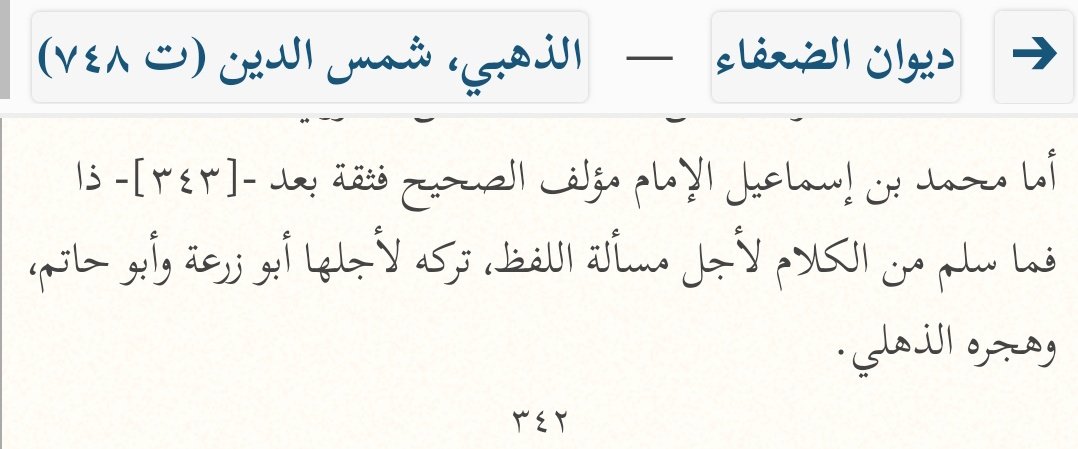 ديوان الضعفاء — الذهبي، شمس الدين (ت ٧٤٨)
أما محمد بن إسماعيل الإمام مؤلف الصحيح فثقة بعد -[٣٤٣]- ذا
فما سلم من الكلام لأجل مسألة اللفظ، تركه لأجلها أبو زرعة وأبو حاتم،
وهجره الذهلي.
٣٤٢